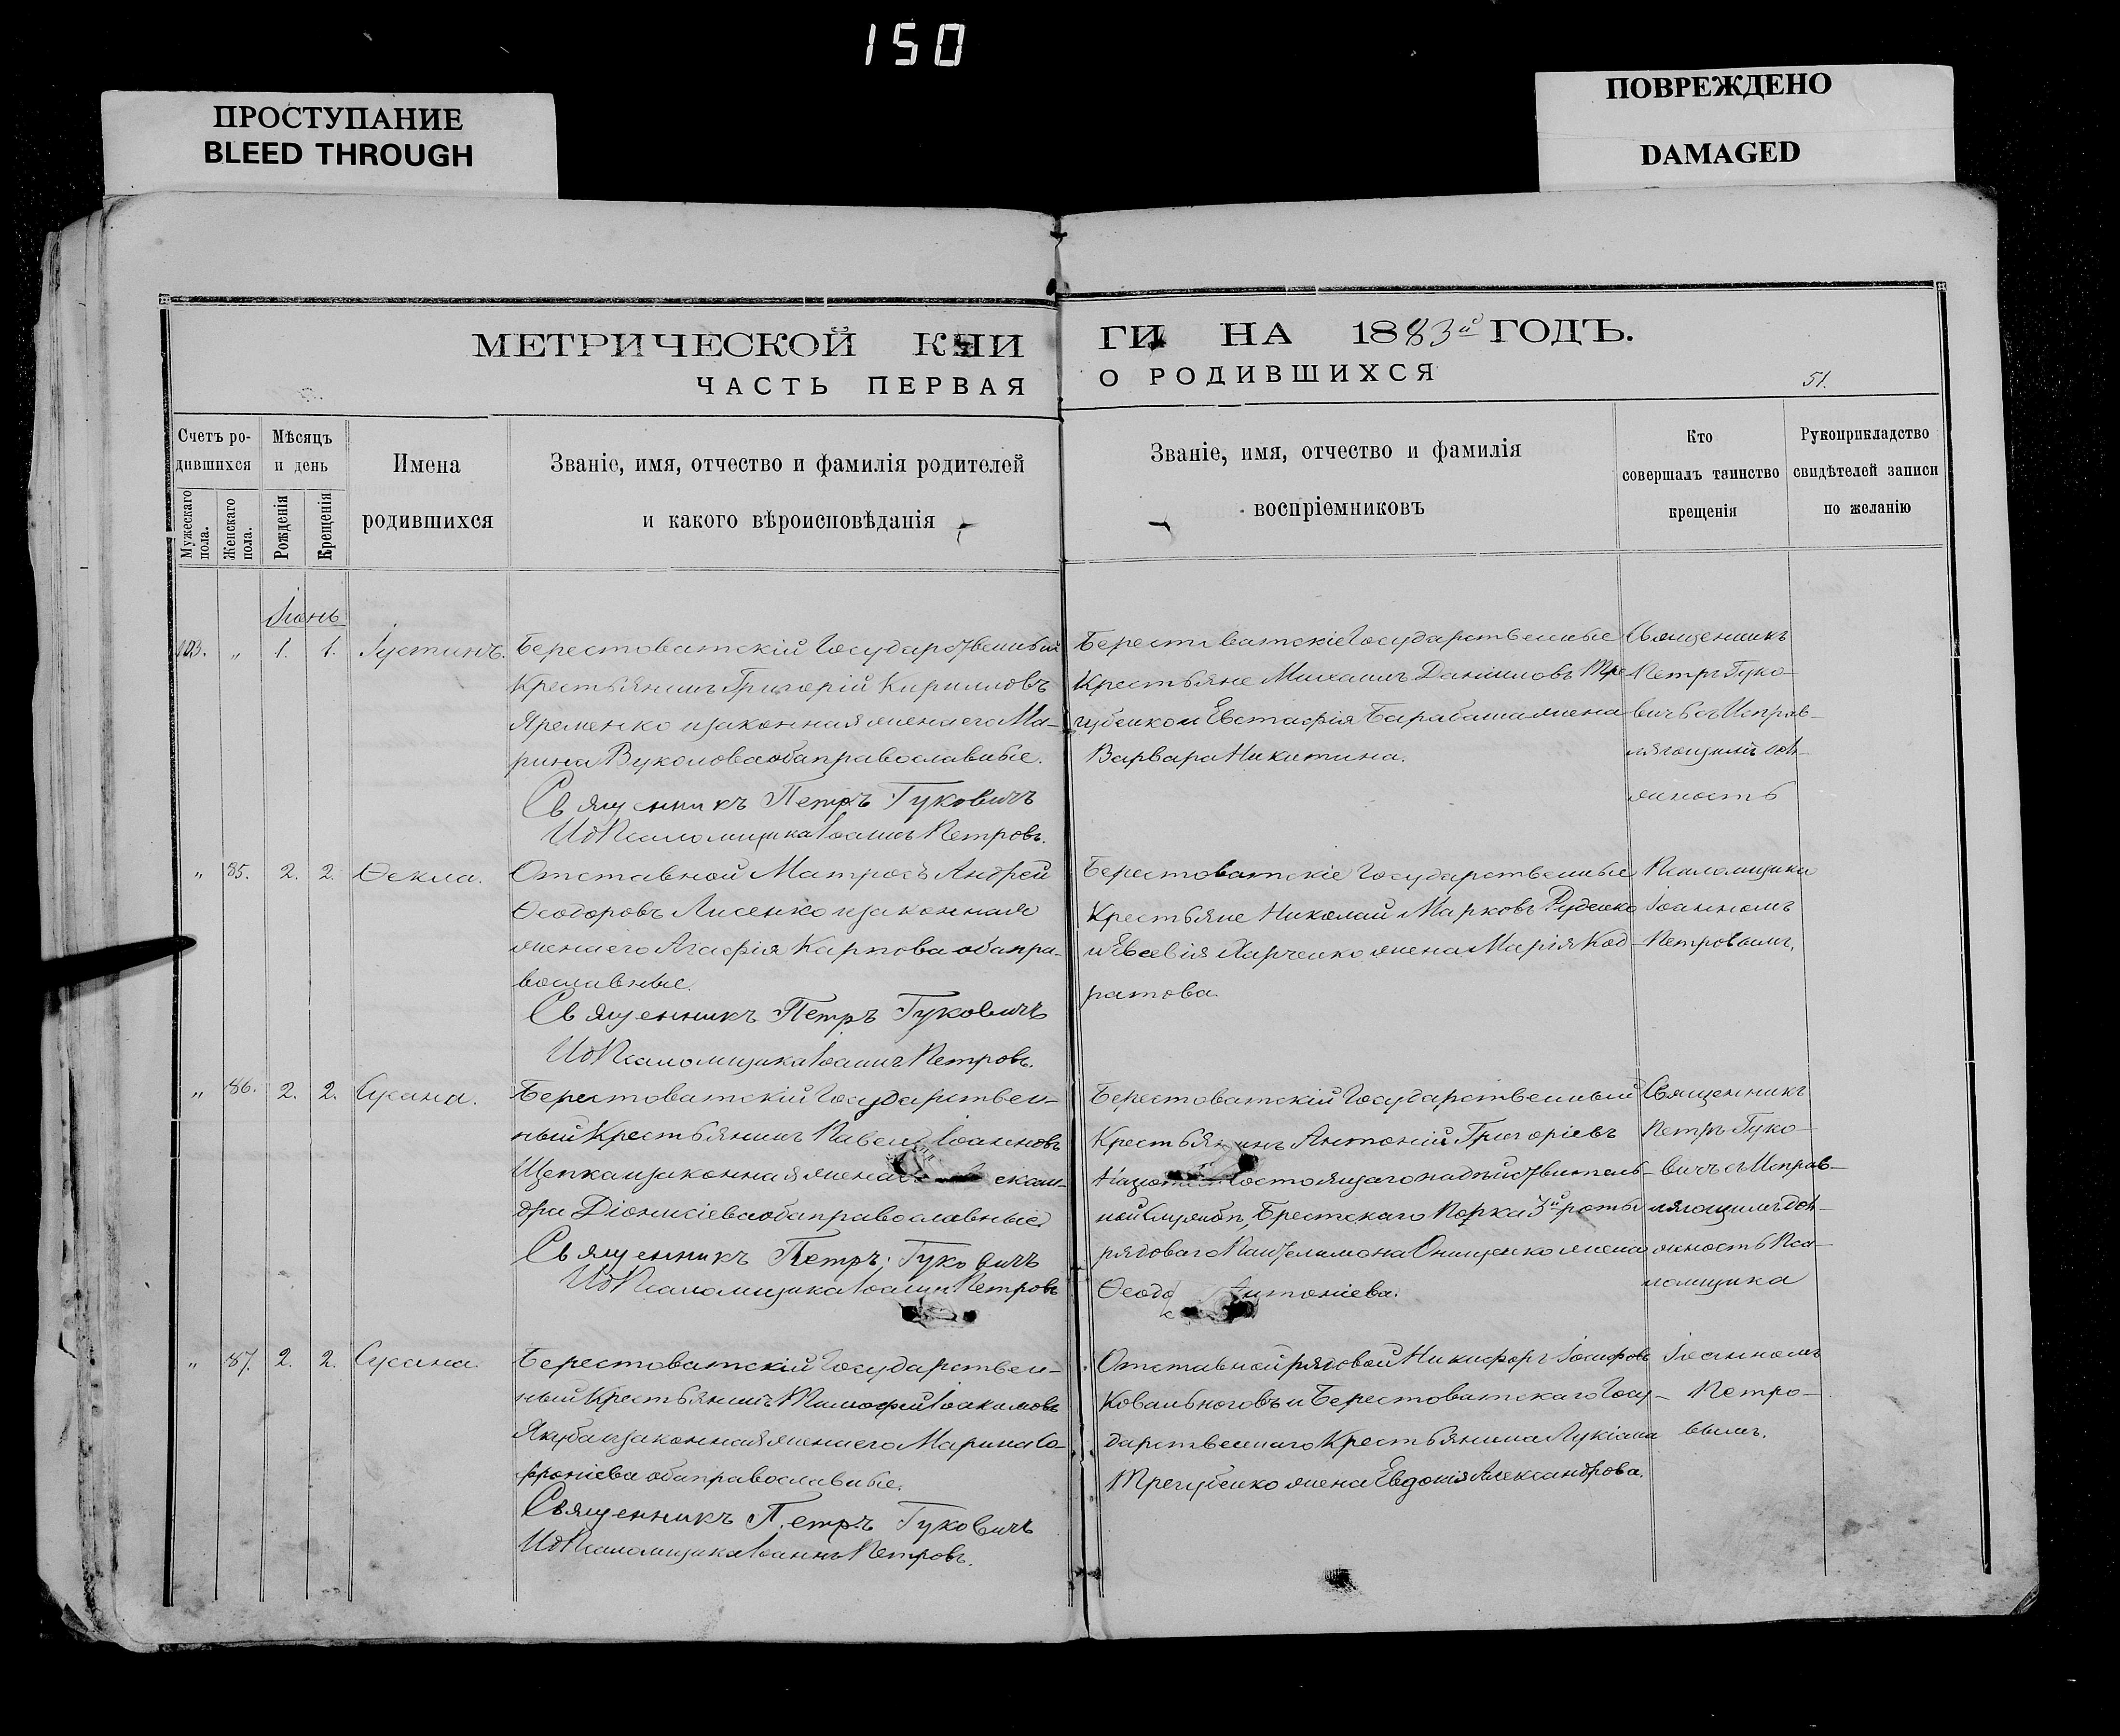 150
ПРОСТУПАНИЕ
BLEED THROUGH
ПОВРЕЖДЕНО
DAMAGED
МЕТРИЧЕСКОЙ КНИ
ГИ НА 1883й ГОДЪ.
ЧАСТЬ ПЕРВАЯ
О РОДИВШИХСЯ
51.
Счетъ ро-
дившихся
Мужескаго
пола.
Женскаго
пола.
Мѣсяцъ
и день
Рожденія
Крещенія
Имена
родившихся
Званіе, имя, отчество и фамилія родителей
и какого вѣроисповѣданія
Званіе, имя, отчество и фамилія
воспріемниковъ
Кто
совершалъ таинство
крещенія
Рукоприкладство
свидѣтелей записи
по желанію
Іюнь
103. „ 1. 1. Іустинъ.
Берестоватскій Государственный
Крестьянинъ Григорій Кирилловъ
Яременко и законная жена его Ма-
рина Вуколова оба православные.
Священникъ Петръ Гуковичъ
Ид Псаломщика Іоаннъ Петровъ.
Берестоватскіе Государственные
Крестьяне Михаилъ Даніиловъ Тре
губенко и Евстафія Барабаша жена
Варвара Никитина.
Священникъ
Петръ Гуко-
вичъ съ Исправ-
ляющимъ дол-
жность
„ 85. 2. 2. Ѳекла.
Отставной Матросъ Андрей
Ѳеодоровъ Лисенко и законная
жена его Агафія Карпова оба пра-
вославные.
Священникъ Петръ Гуковичъ
Ид Псаломщика Іоаннъ Петровъ.
Берестоватскіе Государственные
Крестьяне Николай Марковъ Руденко
и Евсевія Харченко жена Марія Код-
ратова.
Псаломщика
Іоанномъ
Петровымъ.
„ 86. 2. 2. Сусана.
Берестоватскій Государствен-
ный Крестьянинъ Павелъ Іоанновъ
Щепка и законная жена его екган-
дра Діонисіева оба православные
Священникъ Петръ Гуковичъ
Ид Псаломщика Іоаннъ Петровъ
Берестоватскій Государственный
Крестьянинъ Антоній Григоріевъ
состоящаго на дѣйствитель-
ной службѣ, Брестскаго Полка 3й роты
рядоваго Пантелимона Онищенко жена
Ѳеодо Антоніева.
Священникъ
Петръ Гуко-
вичъ съ Исправ-
ляющимъ дол-
жность Пса-
ломщика
„ 87. 2. 2. Сусана.
Берестоватскій Государствен-
ный Крестьянинъ Тимофей Іоакимовъ
Якуба и законная жена его Марина Со-
фроніева оба православные.
Священникъ Петръ Гуковичъ
Ид Псаломщика Іоаннъ Петровъ.
Отставной рядовой Никифоръ Іосифовъ
Ковальноговъ и Берестоватскаго Госу-
дарственнаго Крестьянина Лукіана
Трегубенко жена Евдокія Александрова.
Іоанномъ
Петро-
вымъ.